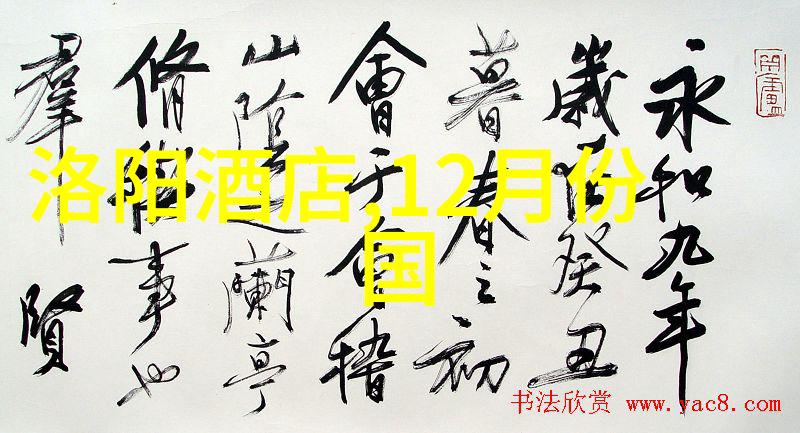 永和九年
歲在癸丑
暮春之初
會于會稽
山陰之蘭亭
脩禊事也
羣賢
洛阳酒店,12月份
国
书法欣赏 www.yac8.com